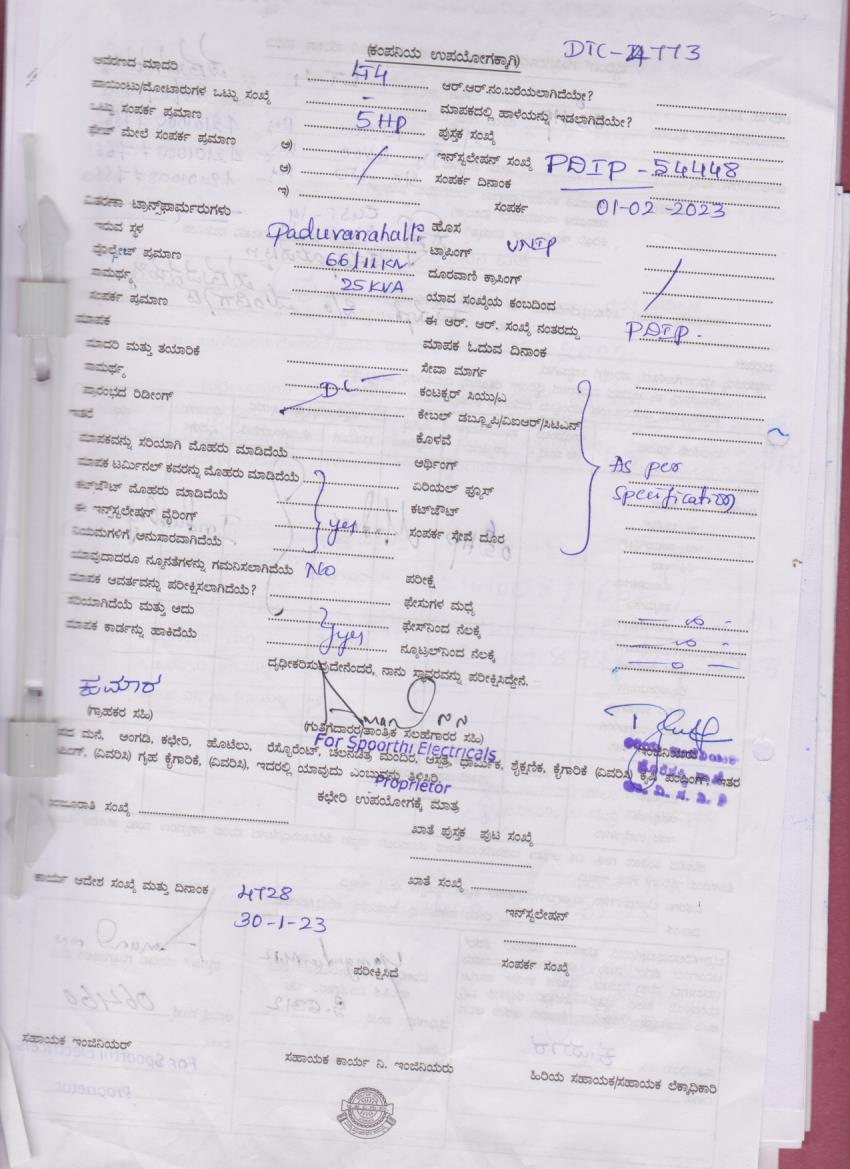 (ಕಂಪನಿಯ ಉಪಯೋಗಕ್ಕಾಗಿ)
DTC-4773
ಆವರಣದ ಮಾದರಿ LT4 ಆರ್.ಆರ್.ನಂ.ಬರೆಯಲಾಗಿದೆಯೇ?
ಪಾಯಿಂಟು/ಮೋಟಾರುಗಳ ಒಟ್ಟು ಸಂಖ್ಯೆ - ಮಾಪಕದಲ್ಲಿ ಹಾಳೆಯನ್ನು ಇಡಲಾಗಿದೆಯೇ?
ಒಟ್ಟು ಸಂಪರ್ಕ ಪ್ರಮಾಣ 5 HP ಪುಸ್ತಕ ಸಂಖ್ಯೆ
ಮೇಲೆ ಸಂಪರ್ಕ ಪ್ರಮಾಣ ಅ) ಇನ್‌ಸ್ಟಲೇಷನ್ ಸಂಖ್ಯೆ PDIP - 54448
ಆ) ಸಂಪರ್ಕ ದಿನಾಂಕ
ಇ) ಸಂಪರ್ಕ 01-02-2023
ವಿತರಣಾ ಟ್ರಾನ್ಸ್‌ಫಾರ್ಮರುಗಳು
ಇರುವ ಸ್ಥಳ Paduvanahalli ಹೊಸ
ವೋಲ್ಟೇಜ್ ಪ್ರಮಾಣ 66/11KV ಟ್ಯಾಪಿಂಗ್ UNIP
ಸಾಮರ್ಥ್ಯ 25 KVA ದೂರವಾಣಿ ಕ್ರಾಸಿಂಗ್
ಸಂಪರ್ಕ ಪ್ರಮಾಣ - ಯಾವ ಸಂಖ್ಯೆಯ ಕಂಬದಿಂದ
ಮಾಪಕ ಈ ಆರ್. ಆರ್. ಸಂಖ್ಯೆ ನಂತರದ್ದು PDIP.
ಮಾದರಿ ಮತ್ತು ತಯಾರಿಕೆ ಮಾಪಕ ಓದುವ ದಿನಾಂಕ
ಸಾಮರ್ಥ್ಯ ಸೇವಾ ಮಾರ್ಗ
ಪ್ರಾರಂಭದ ರಿಡೀಂಗ್ DC ಕಂಟಕ್ಟರ್ ಸಿಯು/ಎ
ಇತರೆ ಕೇಬಲ್ ಡಬ್ಲ್ಯೂಪಿ/ವಿಐಆರ್/ಸಿಟಿಎಸ್
ಕೊಳವೆ
ಮಾಪಕವನ್ನು ಸರಿಯಾಗಿ ಮೊಹರು ಮಾಡಿದೆಯೆ ಆರ್ಥಿಂಗ್ As per
ಮಾಪಕ ಟರ್ಮಿನಲ್ ಕವರನ್ನು ಮೊಹರು ಮಾಡಿದೆಯೆ ಏರಿಯಲ್ ಫ್ಯೂಸ್ Specification
ಕಟ್‌ಔಟ್ ಮೊಹರು ಮಾಡಿದೆಯೆ ಕಟ್‌ಔಟ್
ಈ ಇನ್‌ಸ್ಟಲೇಷನ್ ವೈರಿಂಗ್ yes ಸಂಪರ್ಕ ಸೇವೆ ದೂರ
ನಿಯಮಗಳಿಗೆ ಅನುಸಾರವಾಗಿದೆಯೆ
ಯಾವುದಾದರೂ ನ್ಯೂನತೆಗಳನ್ನು ಗಮನಿಸಲಾಗಿದೆಯೆ NO ಪರೀಕ್ಷೆ
ಮಾಪಕ ಆವರ್ತವನ್ನು ಪರೀಕ್ಷಿಸಲಾಗಿದೆಯೆ? ಫೇಸುಗಳ ಮಧ್ಯೆ
ಸರಿಯಾಗಿದೆಯೆ ಮತ್ತು ಅದು yes ಫೇಸ್‌ನಿಂದ ನೆಲಕ್ಕೆ
ಮಾಪಕ ಕಾರ್ಡನ್ನು ಹಾಕಿದೆಯೆ ನ್ಯೂಟ್ರಲ್‌ನಿಂದ ನೆಲಕ್ಕೆ
ದೃಢೀಕರಿಸುವುದೇನೆಂದರೆ, ನಾನು ಸ್ಥಾವರವನ್ನು ಪರೀಕ್ಷಿಸಿದ್ದೇನೆ.
ಕುಮಾರ
(ಗ್ರಾಹಕರ ಸಹಿ) (ಗುತ್ತಿಗೆದಾರರ/ತಾಂತ್ರಿಕ ಸಲಹೆಗಾರರ ಸಹಿ)
For Spoorthi Electricals
Proprietor
ಮನೆ, ಅಂಗಡಿ, ಕಛೇರಿ, ಹೊಟೆಲು, ರೆಸ್ಟೊರೆಂಟ್, ಚಲನಚಿತ್ರ ಮಂದಿರ, ಆಸ್ಪತ್ರೆ, ಧಾರ್ಮಿಕ, ಶೈಕ್ಷಣಿಕ, ಕೈಗಾರಿಕೆ (ವಿವರಿಸಿ) ಕೃಷಿ ಪಂಪಿಂಗ್, ಇತರ
(ವಿವರಿಸಿ) ಗೃಹ ಕೈಗಾರಿಕೆ, (ವಿವರಿಸಿ), ಇದರಲ್ಲಿ ಯಾವುದು ಎಂಬುದನ್ನು ತಿಳಿಸಿರಿ.
ಕಛೇರಿ ಉಪಯೋಗಕ್ಕೆ ಮಾತ್ರ
ಸಂಖ್ಯೆ ಖಾತೆ ಪುಸ್ತಕ ಪುಟ ಸಂಖ್ಯೆ
ಕಾರ್ಯ ಆದೇಶ ಸಂಖ್ಯೆ ಮತ್ತು ದಿನಾಂಕ 4728 ಖಾತೆ ಸಂಖ್ಯೆ
30-1-23 ಇನ್‌ಸ್ಟಲೇಷನ್
ಪರೀಕ್ಷಿಸಿದೆ ಸಂಪರ್ಕ ಸಂಖ್ಯೆ
ಸಹಾಯಕ ಇಂಜಿನಿಯರ್ ಸಹಾಯಕ ಕಾರ್ಯ ನಿ. ಇಂಜಿನಿಯರು ಹಿರಿಯ ಸಹಾಯಕ/ಸಹಾಯಕ ಲೆಕ್ಕಾಧಿಕಾರಿ